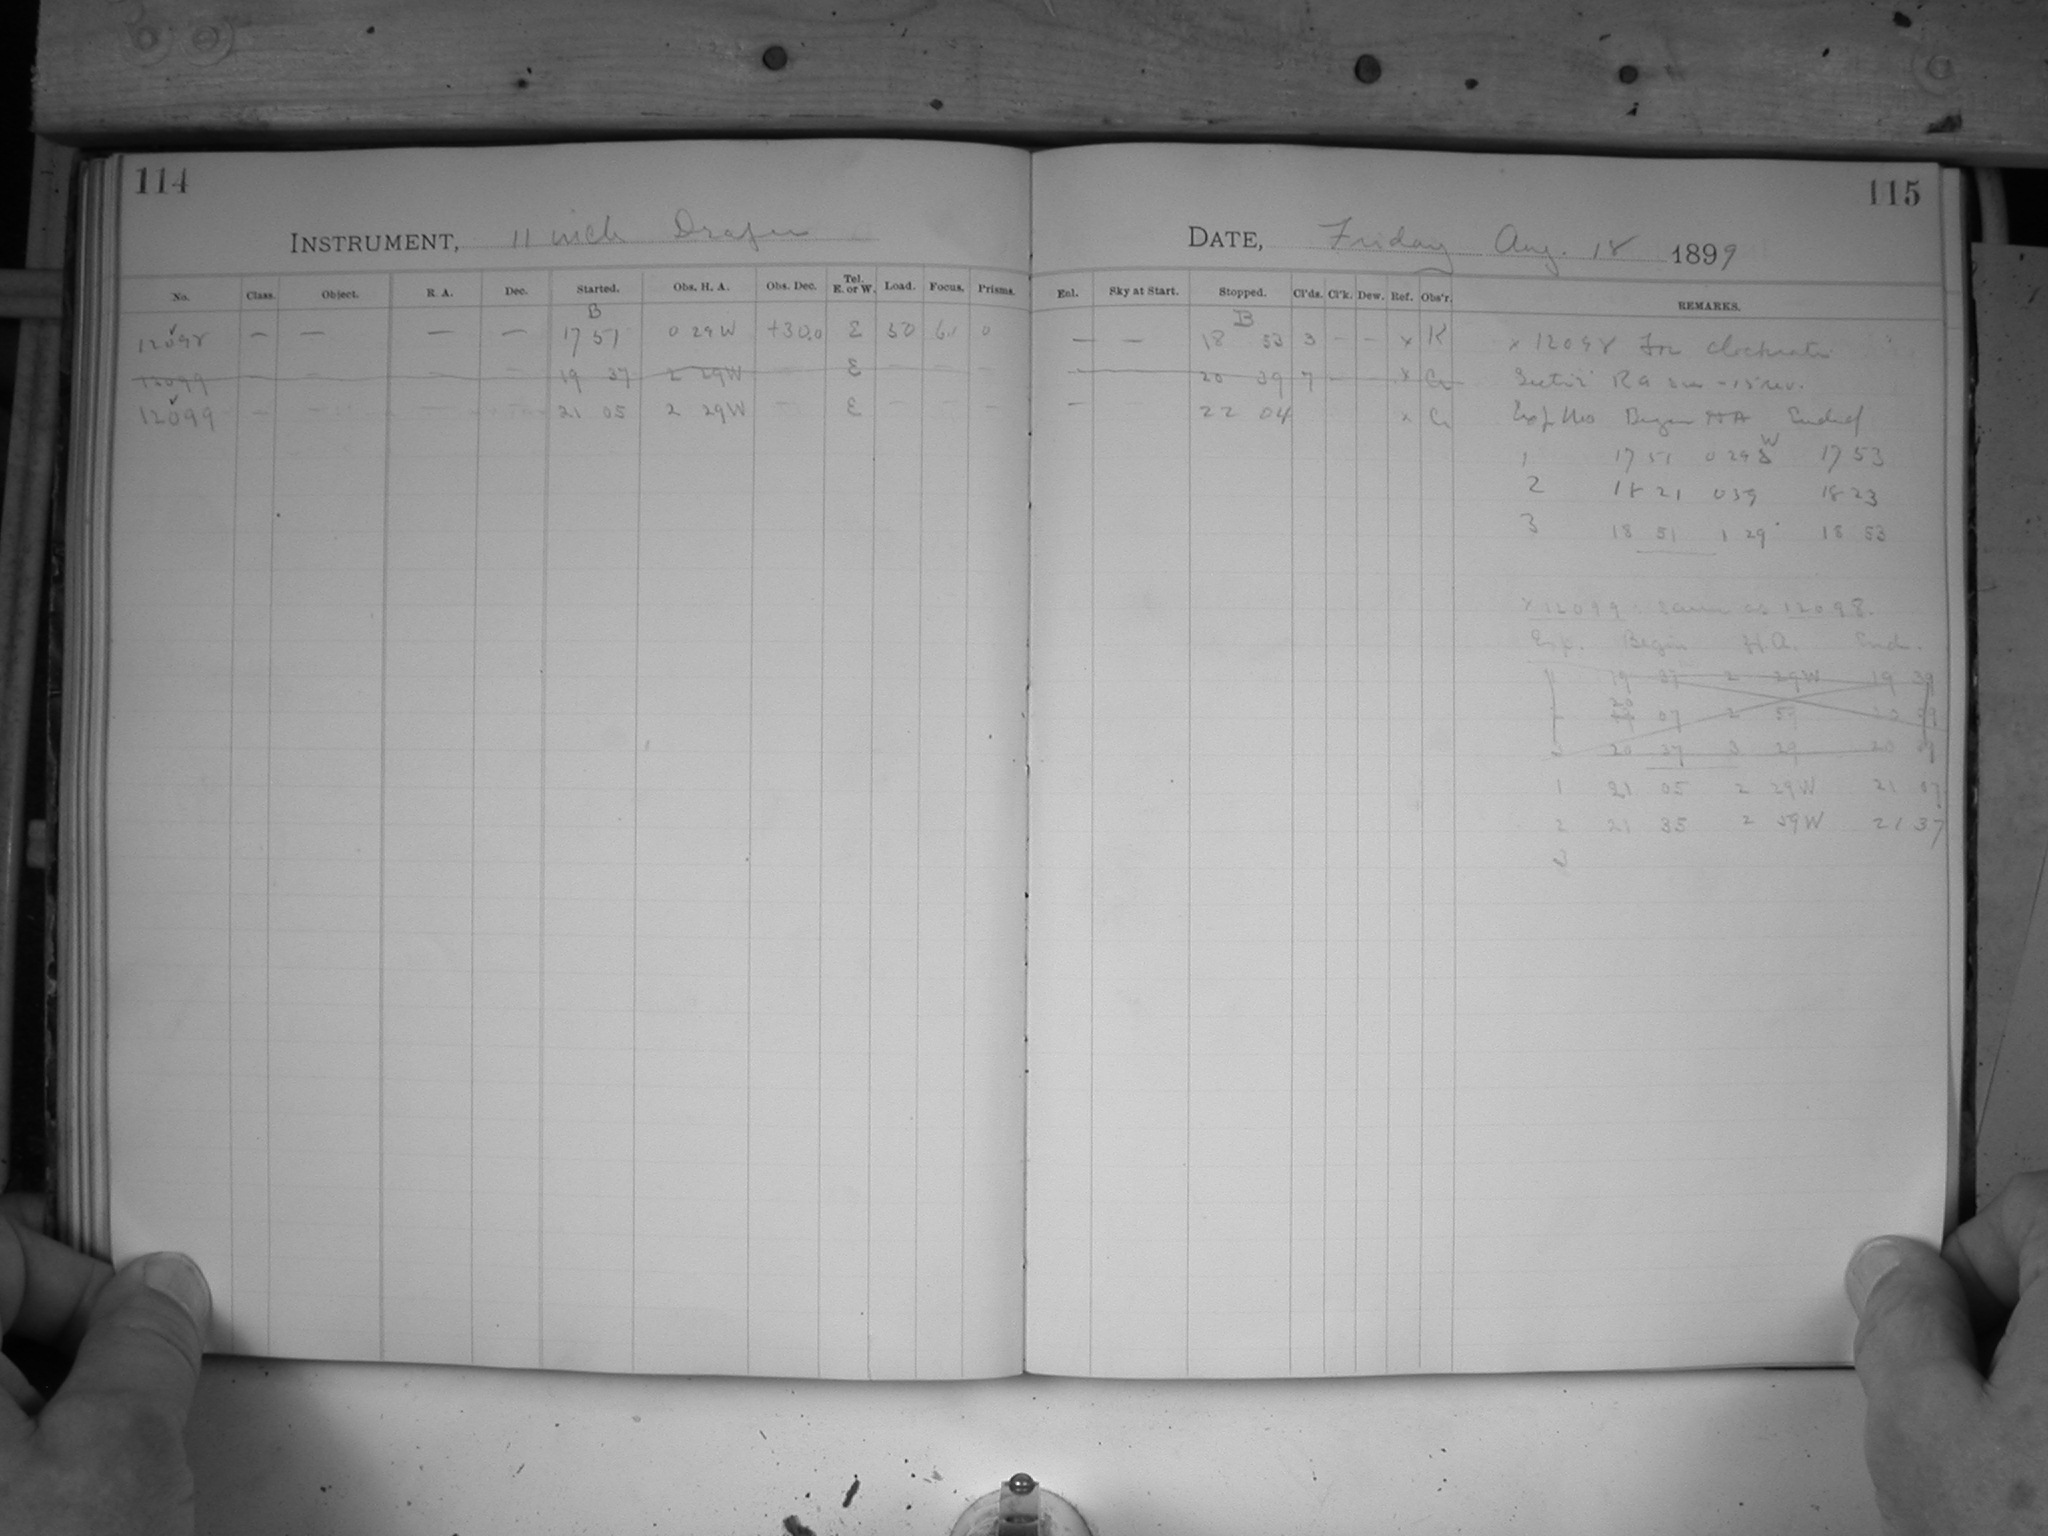 114
INSTRUMENT, 11 inch Draper
No. Class. Object. R. A. Dec. Started. Obs. H. A. Obs. Dec. Tel. E. or W. Load. Focus. Prisms.
B
12098 — — — — 17 51 0 29 W +30.0 E 50 6.1 0
12099 — — — — 19 37 2 29W — E — — —
12099 — — — — 21 05 2 29W — E — — —
115
DATE, Friday Aug. 18 1899
Enl. Sky at Start. Stopped. Cl'ds. Cl'k. Dew. Ref. Obs'r. REMARKS.
B
— — 18 53 3 - - x K x 12098 For clockrate
— — 20 39 7 - - x
— — 22 04 x
Begin HA Ended
1 17 51 0 29 W 17 53
2 18 21 0 59 18 23
3 18 51 1 29 18 53
x 12099 same as 12098.
Exp. Begin H.A. End.
1 19 37 2 29W 19 39
2 20 07 2 59 20 09
3 20 37 3 29 20 39
1 21 05 2 29W 21 07
2 21 35 2 59W 21 37
3